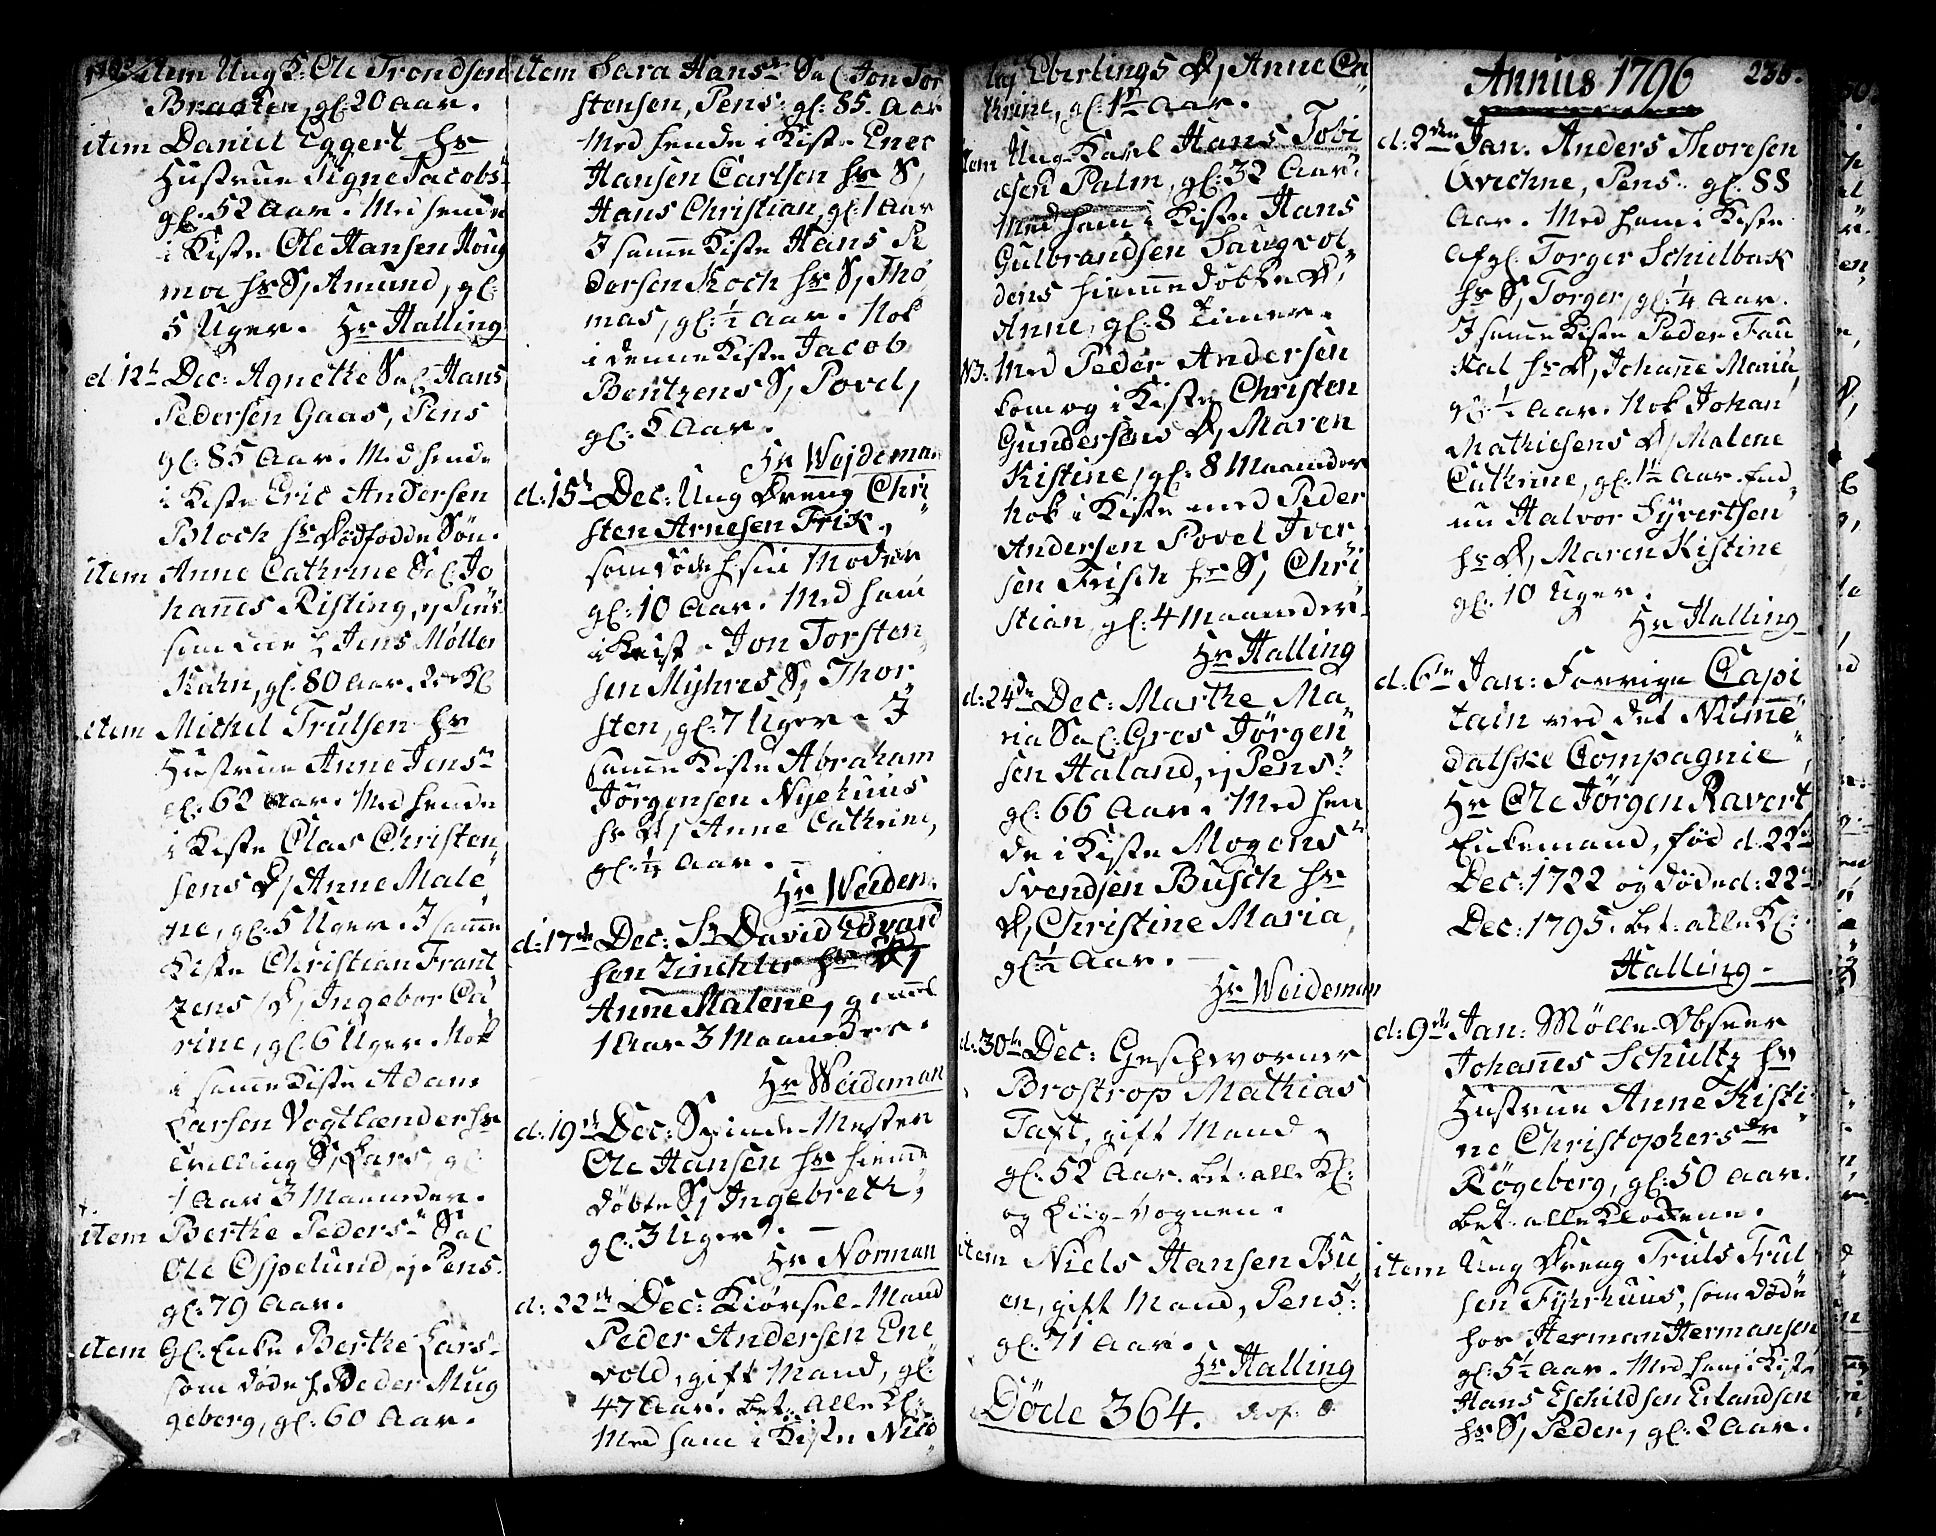 item Ung K: Ole Trondsen
Braaten, gl: 20 Aar.
item Daniel Eggert hs
Hustrue Signe Jacobs
gl: 52 Aar. Med hende
i Kiste Ole Hansen Houg
moe hs S, Amund, gl:
5 Uger. Hr Halling
d. 12t Dec: Agnethe Sal Hans
Pedersen Gaas, Pens
gl: 85 Aar. Med hende
i Kiste Eric Andersen
Bloch hs dödfödde Sön.
item Anne Cathrine Sal: Jo
hannes Risting, ej Pens
som døde h Jens Møller
Kahn, gl: 80 Aar. 2de Kl
item Michel Trulsen hs
Hustrue Anne Jens
gl: 62 Aar. Med hende
i Kiste Clas Christen
sens D, Anne Male
ne, gl: 5 Uger. I samme
Kiste Christian Frant
zens D, Ingebor Ca
rine, gl: 6 Uger. Nok
i samme Kiste Adam
Larsen Vogtlænder hs
Tvilling S, Lars, gl
1 Aar 3 Maaneder.
item Berthe Peders Sal
Ole Espelund, ej Pens:
gl: 79 Aar.
item Gl: Enke Berthe Lars
som døde h. Peder Mug
geberg, gl: 60 Aar.
item Sara Hans Sal Jon Tor
stensen, Pens: gl: 85. Aar
Med hende i Kiste Enec
Hansen Carlsen hs S,
Hans Christian, gl: 1 Aar
I samme Kiste Hans Pe
dersen Koch hs S, Tho
mas, gl: ½ Aar. Nok
i denne Kiste Jacob
Bentzens S, Povel,
gl: 5 Aar.
Hr Wejdeman
d: 15t Dec: Ung Dreng Chri
sten Arnesen Frik,
som døde h sin Moder
gl: 10 Aar. Med ham
i Kiste Jon Torsten
sen Myhres S, Thor
sten, gl: 7 Uger. I
samme Kiste Abraham
Jørgensen Nyehuus
hs D, Anne Cathrine,
gl: ¼ Aar.
Hr Weidem.
d: 17de Dec: Sr David Edvard
sen Zinchler hs D,
Anne Malene, gammel
1 Aar 3 Maaneder.
Hr Weideman
d: 19de Dec: Spinde-Mester
Ole Hansen hs hieme
døbte S, Ingebreth,
gl: 3 Uger.
Hr Norman
d: 22de Dec: Kiörsel-Mand
Peder Andersen Ene
vold, gift Mand, gl:
47 Aar. bet: alle Kl:
Med ham i Kiste Nico
laj Eberlings D, Anne Ca
thrine, gl: 1½ Aar.
item Ung Karl Hans Tobi
æsen Palm, gl: 32 Aar
Med ham i Kiste Hans
Gulbrandsen Saugvol
dens hiemmedøbte D,
Anne, gl: 8 Timer.
NB: Med Peder Andersen
kom og i Kiste Christen
Gundersens D, Maren
Kistine, gl: 8 Maaneder
Nok i Kiste med Peder
Andersen Povel Iver
sen Frisch hs S, Chri
stian, gl: 4 Maaneder.
Hr Halling
d: 24de Dec: Marthe Ma
ria Sal: Gres Jørgen
sen Haland, ej Pens:
gl: 66 Aar. Med hen
de i Kiste Mogens
Svendsen Busch hs
D, Christine Maria,
gl: ½ Aar.
Hr Weideman
d: 30te Dec: Geschworner
Brostrop Mathias
Taft, gift Mand
gl: 52 Aar. bet: alle Kl:
og Liig-Vognen.
item Niels Hansen Bu
en, gift Mand, Pens:
gl: 71 Aar.
Hr Halling
Döde 364.
Annus 1796 236.
d: 2den Jan. Anders Thoresen
Qvichne, Pens: gl: 88
Aar. Med ham i Kiste
afgl: Torger Schielbek
hs S, Torger, gl: ¼ Aar.
I samme Kiste Peder Fau
kal hs D, Johanne Maria,
gl: ½ Aar. Nok Johan
Mathiesens D, Malene
Cathrine, gl: 1½ Aar. End
nu Halvor Syvertsen
hs D, Maren Kistine
gl: 10 Uger.
Hr Halling
d. 6te Jan: Forrige Capi
tain ved det Numme
dalske Compagnie,
Hr Ole Jørgen Ravert
Enkemand, fød d. 22de
Dec: 1722 og døde d: 22de
Dec: 1795. bet: alle Kl:
Halling
d: 9de Jan: Mølle-Obseer
Johannes Schultz hs
Hustrue Anne Kisti
ne Christophersdr
Røgeberg, gl: 50 Aar.
bet: alle Klokkene.
item Ung Dreng Truls Trul
sen Fyhrhuus, som döde
hos Herman Hermansen
gl: 5½ Aar. Med ham i Kiste
Hans Eschildsen Erlandsen
hs S, Peder, gl: 2 Aar.